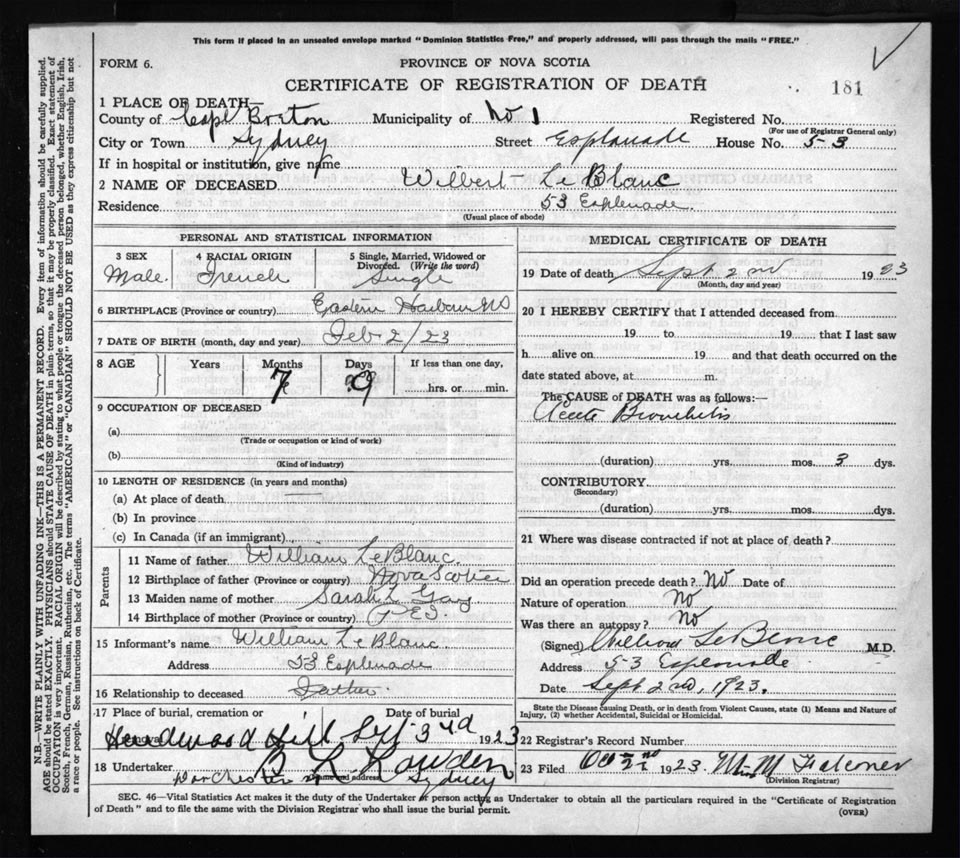 This form if placed in an unsealed envelope marked "Dominion Statistics-Free," and properly addressed, will pass through the mails "FREE."
FORM 6.
PROVINCE OF NOVA SCOTIA
CERTIFICATE OF REGISTRATION OF DEATH
181
1 PLACE OF DEATH—
County of Cape Breton Municipality of No 1 Registered No.
(For use of Registrar General only)
City or Town Sydney Street Esplanade House No. 53
If in hospital or institution, give name
2 NAME OF DECEASED Wilbert Le Blanc
Residence 53 Esplenade
(Usual place of abode)
PERSONAL AND STATISTICAL INFORMATION
3 SEX 4 RACIAL ORIGIN 5 Single, Married, Widowed or Divorced. (Write the word)
Male. French Single
6 BIRTHPLACE (Province or country) Eastern Harbour NS
7 DATE OF BIRTH (month, day and year) Feb 2/23
8 AGE Years Months Days If less than one day,
7 hrs. or min.
9 OCCUPATION OF DECEASED
(a)
(Trade or occupation or kind of work)
(b)
(Kind of industry)
10 LENGTH OF RESIDENCE (in years and months)
(a) At place of death —
(b) In province
(c) In Canada (if an immigrant)
Parents
11 Name of father William LeBlanc
12 Birthplace of father (Province or country) Nova Scotia
13 Maiden name of mother Sarah
14 Birthplace of mother (Province or country) P E I
15 Informant's name William Le Blanc
Address 53 Esplenade
16 Relationship to deceased Father
17 Place of burial, cremation or removal Date of burial
Hardwood Hill Sept 3rd 1923
18 Undertaker
(name and address)
Dorchester Sydney
MEDICAL CERTIFICATE OF DEATH
19 Date of death Sept 2nd 1923
(Month, day and year)
20 I HEREBY CERTIFY that I attended deceased from
19 to 19 , that I last saw
h alive on 19 and that death occurred on the
date stated above, at m.
The CAUSE of DEATH was as follows:—
Acute Bronchitis
(duration) yrs. mos. 3 dys.
CONTRIBUTORY
(Secondary)
(duration) yrs. mos. dys.
21 Where was disease contracted if not at place of death?
Did an operation precede death? No Date of
Nature of operation No
Was there an autopsy? No
(Signed) William LeBlanc M.D.
Address 53 Esplanade
Date Sept 2nd, 1923.
State the Disease causing Death, or in death from Violent Causes, state (1) Means and Nature of
Injury, (2) whether Accidental, Suicidal or Homicidal.
22 Registrar's Record Number
23 Filed Oct 1923
(Division Registrar)
SEC. 46—Vital Statistics Act makes it the duty of the Undertaker or person acting as Undertaker to obtain all the particulars required in the "Certificate of Registration
of Death" and to file the same with the Division Registrar who shall issue the burial permit.
(OVER)
N.B.—WRITE PLAINLY WITH UNFADING INK—THIS IS A PERMANENT RECORD. Every item of information should be carefully supplied.
AGE should be stated EXACTLY. PHYSICIANS should STATE CAUSE OF DEATH in plain terms, so that it may be properly classified. Exact statement of
OCCUPATION is very important. RACIAL ORIGIN will be described by stating to what people or tongue the deceased person belonged, whether English, Irish,
Scotch, French, German, Russian, Ruthenian, etc. The terms "AMERICAN" or "CANADIAN" SHOULD NOT BE USED as they express citizenship but not
a race or people. See instructions on back of Certificate.